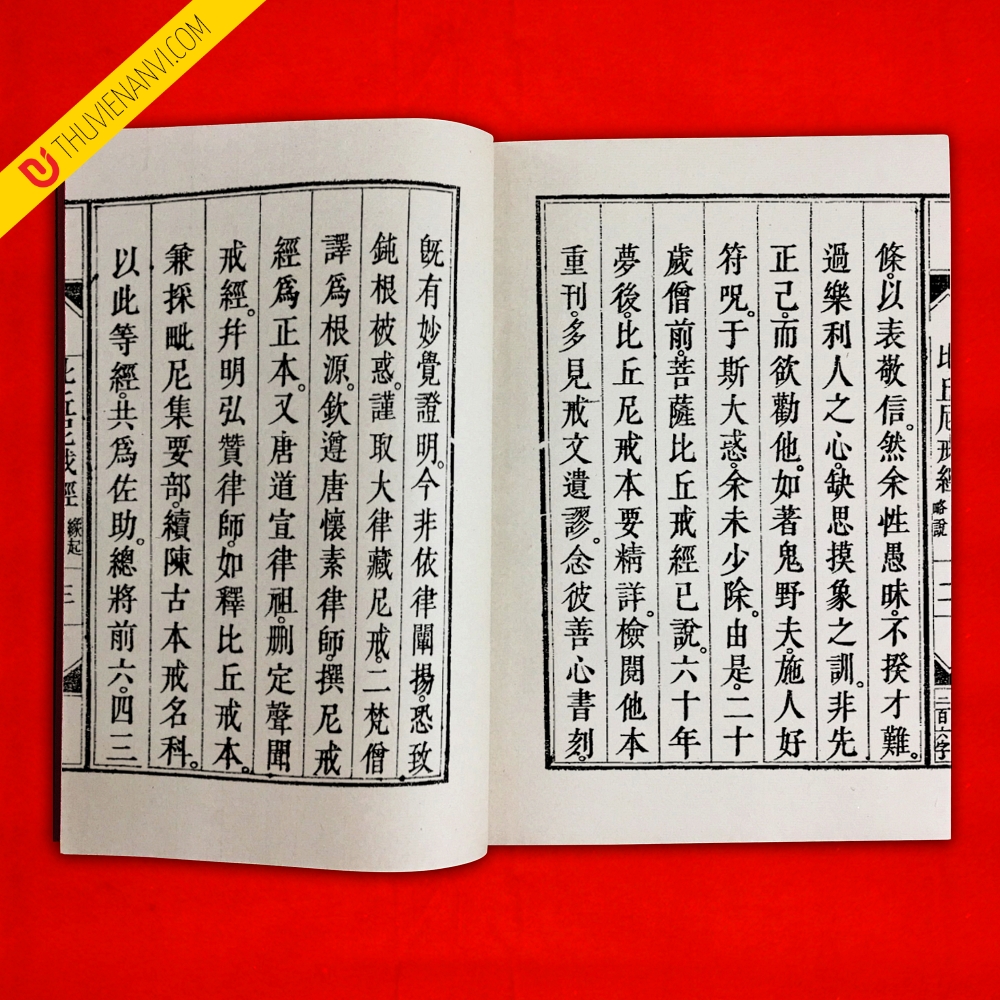 THUVIENANVI.COM
比丘尼戒經
略說
二
二百六字
條。以表敬信。然余性愚昧。不揆才難。
過樂利人之心。缺思摸象之訓。非先
正己。而欲勸他。如著鬼野夫。施人好
符呪。于斯大惑。余未少除。由是。二十
歲僧前。菩薩比丘戒經已說。六十年
夢後。比丘尼戒本要精詳。檢閱他本
重刊。多見戒文遺謬。念彼善心書刻。
既有妙覺證明。今非依律闡揚。恐攷
鈍根被惑。謹取大律藏尼戒。二梵僧
譯爲根源。欽遵唐懷素律師。撰尼戒
經爲正本。又唐道宣律祖。刪定聲聞
戒經。幷明弘贊律師。如釋比丘戒本。
兼採毗尼集要部。續陳古本戒名科。
以此等經。共爲佐助。總將前六。四三
比丘尼戒經
緣起
三